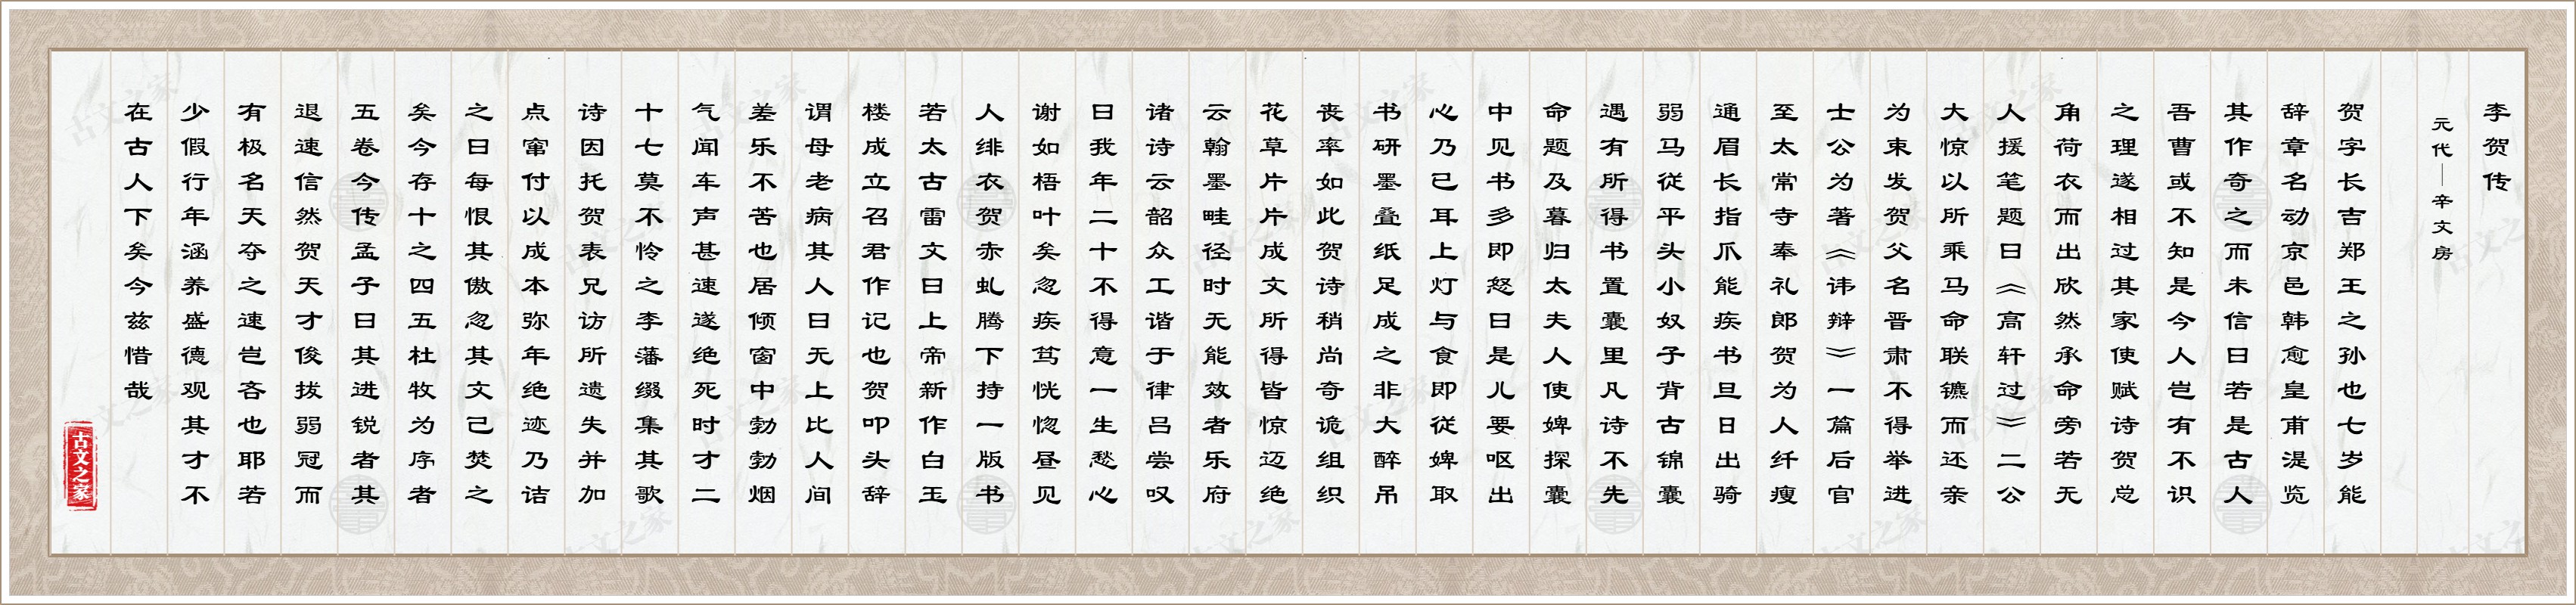 李贺传
元代—辛文房
贺字长吉郑王之孙也七岁能
辞章名动京邑韩愈皇甫湜览
其作奇之而未信曰若是古人
吾曹或不知是今人岂有不识
之理遂相过其家使赋诗贺总
角荷衣而出欣然承命旁若无
人援笔题曰《高轩过》二公
大惊以所乘马命联镳而还亲
为束发贺父名晋肃不得举进
士公为著《讳辩》一篇后官
至太常寺奉礼郎贺为人纤瘦
通眉长指爪能疾书旦日出骑
弱马从平头小奴子背古锦囊
遇有所得书置囊里凡诗不先
命题及暮归太夫人使婢探囊
中见书多即怒曰是儿要呕出
心乃已耳上灯与食即从婢取
书研墨叠纸足成之非大醉吊
丧率如此贺诗稍尚奇诡组织
花草片片成文所得皆惊迈绝
云翰墨畦径时无能效者乐府
诸诗云韶众工谐于律吕尝叹
曰我年二十不得意一生愁心
谢如梧叶矣忽疾笃恍惚昼见
人绯衣驾赤虬腾下持一版书
若太古雷文曰上帝新作白玉
楼成立召君作记也贺叩头辞
谓母老病其人曰天上比人间
差乐不苦也居倾窗中勃勃烟
气闻车声甚速遂绝死时才二
十七莫不怜之李藩缀集其歌
诗因托贺表兄访所遗失并加
点窜付以成本弥年绝迹乃诘
之曰每恨其傲忽其文已焚之
矣今存十之四五杜牧为序者
五卷今传孟子曰其进锐者其
退速信然贺天才俊拔弱冠而
有极名天夺之速岂吝也耶若
少假行年涵养盛德观其才不
在古人下矣今兹惜哉
古文之家